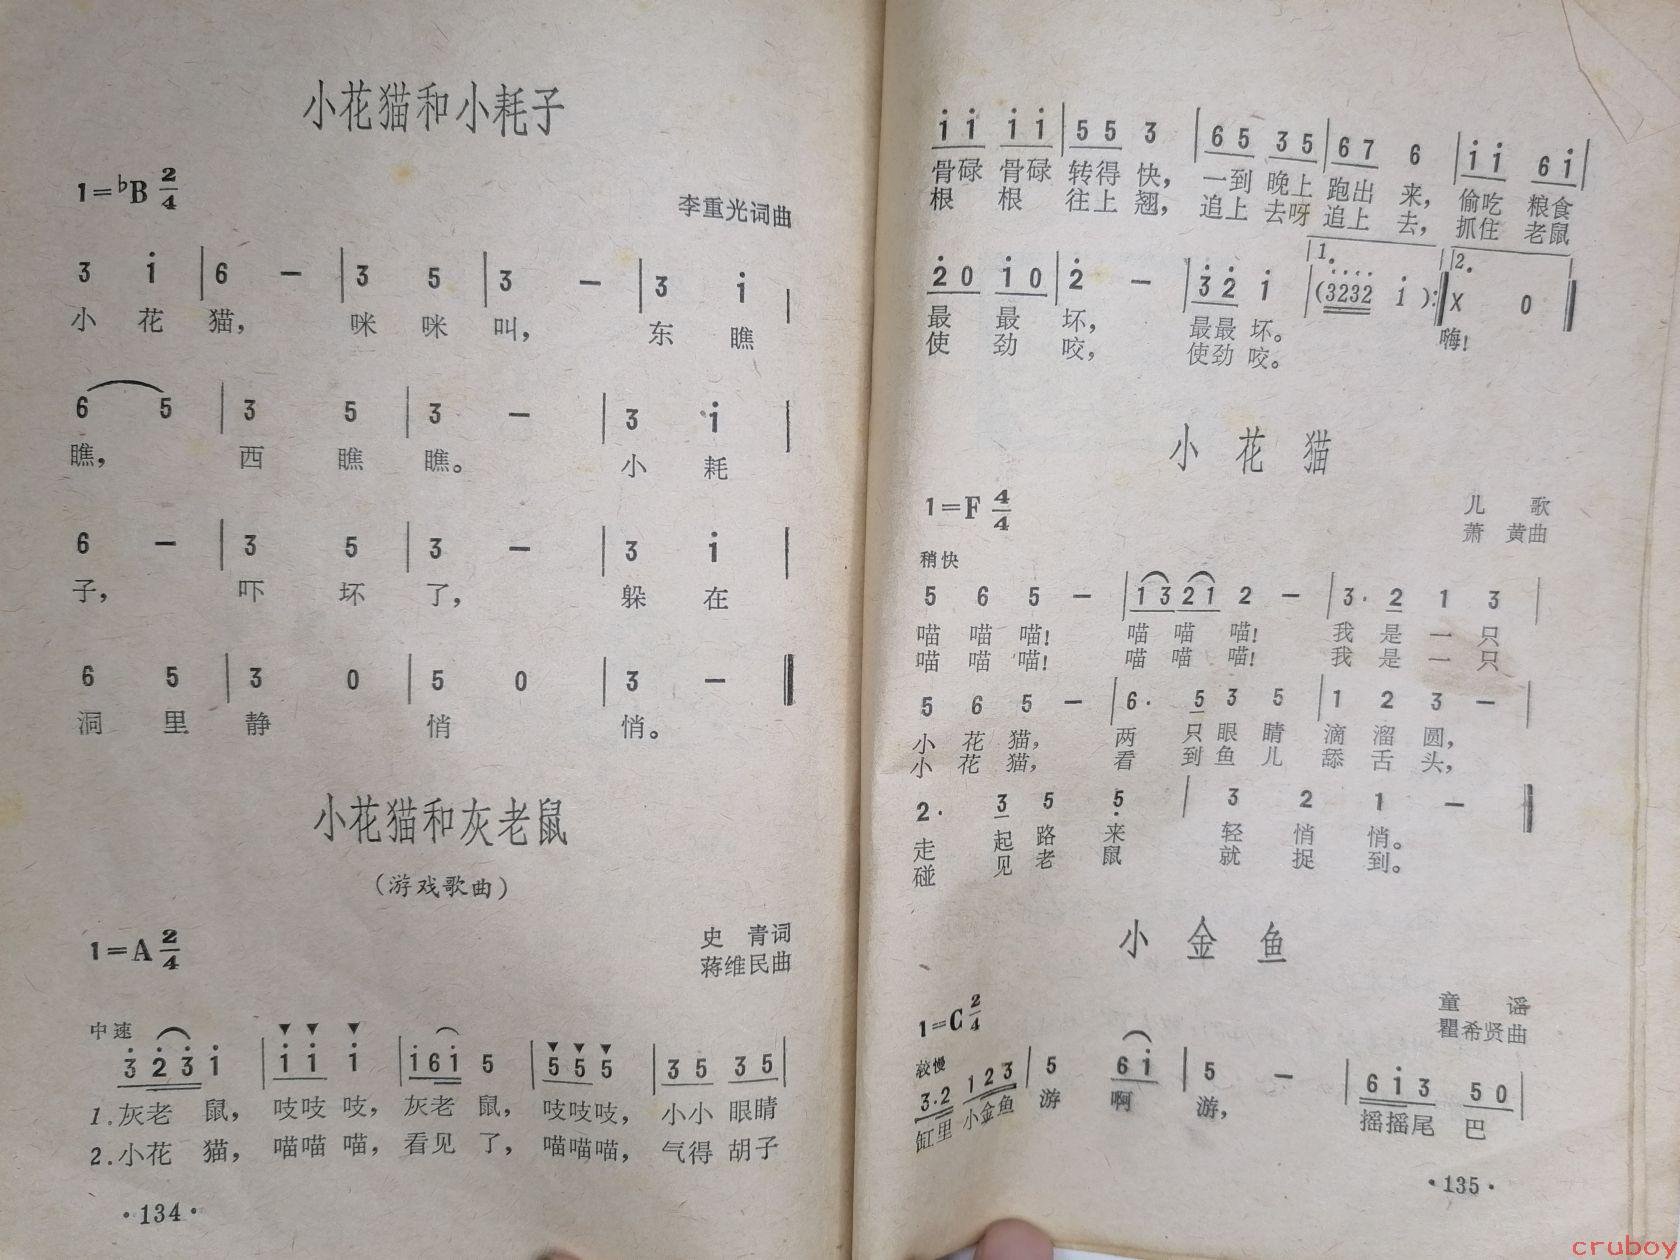 小花猫和小耗子
1=♭B 2/4
李重光词曲
3 i | 6 — | 3 5 | 3 — | 3 i |
小 花 猫， 咪 咪 叫， 东 瞧
6 5 | 3 5 | 3 — | 3 i |
瞧， 西 瞧 瞧。 小 耗
6 — | 3 5 | 3 — | 3 i |
子， 吓 坏 了， 躲 在
6 5 | 3 0 | 5 0 | 3 — ‖
洞 里 静 悄 悄。
小花猫和灰老鼠
（游戏歌曲）
1=A 2/4
史 青词
蒋维民曲
中速
3 2 3 i | i i i | i 6 i 5 | 5 5 5 | 3 5 3 5 |
1.灰老 鼠， 吱吱 吱， 灰老 鼠， 吱吱吱， 小小 眼睛
2.小花 猫， 喵喵 喵， 看见 了， 喵喵喵， 气得 胡子
·134·
i i i i | 5 5 3 | 6 5 3 5 | 6 7 6 | i i 6 i |
骨碌 骨碌 转得 快， 一到 晚上 跑出 来， 偷吃 粮食
根 根 往上 翘， 追上 去呀 追上 去， 抓住 老鼠
1. 2.
2 0 i 0 | 2 — | 3 2 i | (3232 i ):‖ X 0 ‖
最 最 坏， 最最 坏。 嗨!
使 劲 咬， 使劲 咬。
小 花 猫
1=F 4/4
儿 歌
萧 黄曲
稍快
5 6 5 — | 1 3 2 1 2 — | 3· 2 1 3 |
喵 喵 喵! 喵 喵 喵! 我 是 一 只
喵 喵 喵! 喵 喵 喵! 我 是 一 只
5 6 5 — | 6· 5 3 5 | 1 2 3 — |
小 花 猫， 两 只 眼 睛 滴 溜 圆，
小 花 猫， 看 到 鱼 儿 舔 舌 头，
2· 3 5 5 | 3 2 1 — ‖
走 起 路 来 轻 悄 悄。
碰 见 老 鼠 就 捉 到。
小 金 鱼
1=C 2/4
童 谣
瞿希贤曲
较慢
3·2 1 2 3 | 5 6 i | 5 — | 6 i 3 5 0 |
缸里 小金鱼 游 啊 游， 摇摇尾 巴
·135·
cruboy